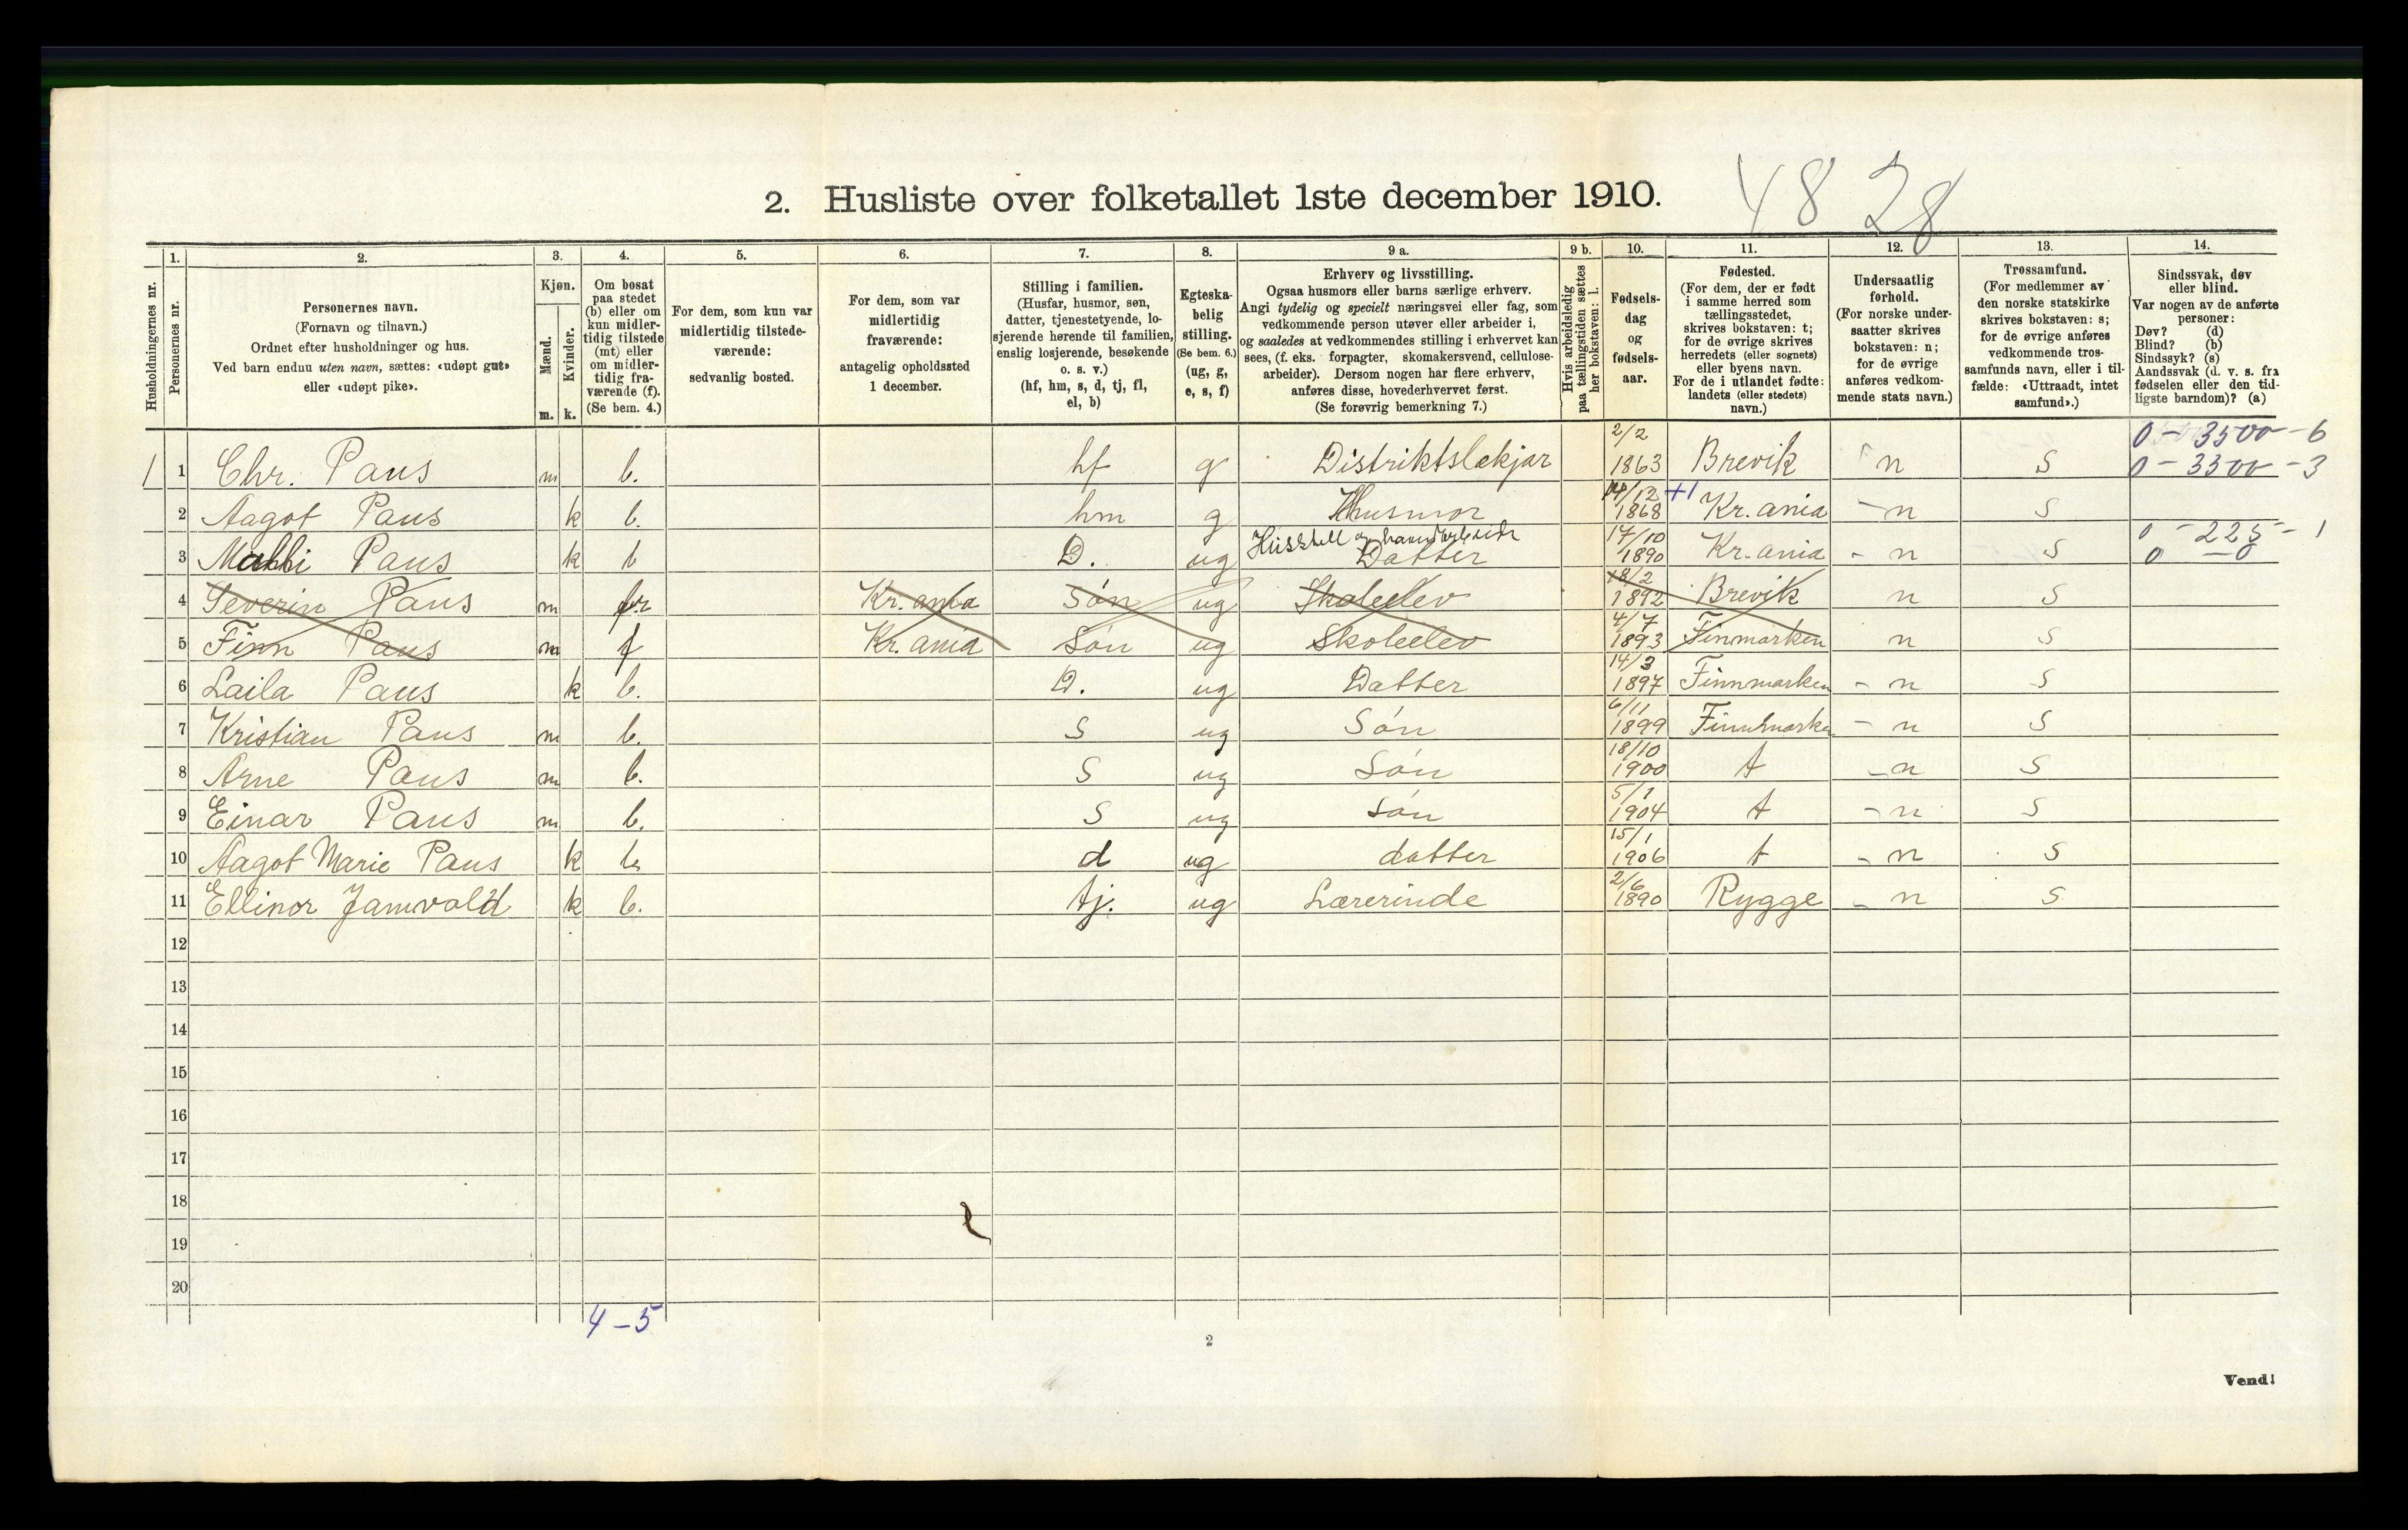 48 28
2. Husliste over folketallet 1ste december 1910.
Husholdningernes nr.
1.
Personernes nr.
2.
Personernes navn.
(Fornavn og tilnavn.)
Ordnet efter husholdninger og hus.
Ved barn endnu uten navn, sættes: «udøpt gut»
eller «udøpt pike».
3.
Kjøn.
Mænd.
Kvinder.
m. k.
4.
Om bosat
paa stedet
(b) eller om
kun midler-
tidig tilstede
(mt) eller
om midler-
tidig fra-
værende (f).
(Se bem. 4.)
5.
For dem, som kun var
midlertidig tilstede-
værende:
sedvanlig bosted.
6.
For dem, som var
midlertidig
fraværende:
antagelig opholdssted
1 december.
7.
Stilling i familien.
(Husfar, husmor, søn,
datter, tjenestetyende, lo-
sjerende hørende til familien,
enslig losjerende, besøkende
o. s. v.)
(hf, hm, s, d, tj, fl,
el, b)
8.
Egteska-
belig
stilling.
(Se bem. 6.)
(ug, g,
e, s, f)
9 a.
Erhverv og livsstilling.
Ogsaa husmors eller barns særlige erhverv.
Angi tydelig og specielt næringsvei eller fag, som
vedkommende person utøver eller arbeider i,
og saaledes at vedkommendes stilling i erhvervet kan
sees, (f. eks. forpagter, skomakersvend, cellulose-
arbeider). Dersom nogen har flere erhverv,
anføres disse, hovederhvervet først.
(Se forøvrig bemerkning 7.)
9 b.
Hvis arbeidsledig
paa tællingstiden sættes
her bokstaven: l.
10.
Fødsels-
dag
og
fødsels-
aar.
11.
Fødested.
(For dem, der er født
i samme herred som
tællingsstedet,
skrives bokstaven: t;
for de øvrige skrives
herredets (eller sognets)
eller byens navn.
For de i utlandet fødte:
landets (eller stedets)
navn.)
12.
Undersaatlig
forhold.
(For norske under-
saatter skrives
bokstaven: n;
for de øvrige
anføres vedkom-
mende stats navn.)
13.
Trossamfund.
(For medlemmer av
den norske statskirke
skrives bokstaven: s;
for de øvrige anføres
vedkommende tros-
samfunds navn, eller i til-
fælde: «Uttraadt, intet
samfund».)
14.
Sindssvak, døv
eller blind.
Var nogen av de anførte
personer:
Døv? (d)
Blind? (b)
Sindssyk? (s)
Aandssvak (d. v. s. fra
fødselen eller den tid-
ligste barndom)? (a)
0 - 3500 - 6
1 1 Chr. Paus m b. hf g Distriktslækjar 2/2 1863 Brevik n S 0 - 3300 - 3
2 Aagot Paus k b. hm g Husmor 14/12 1868 +1 Kr.ania - n S
3 Makki Paus k b D. ug Husstell og haandarbeide Datter 17/10 1890 Kr.ania - n S 0 - 225 - 1
0 - 0
4 Severin Paus m Kr.ania Søn ug Skoleelev 18/2 1892 Brevik n S
5 Finn Paus m f Kr.ania Søn ug Skoleelev 4/7 1893 Finmarken n S
6 Laila Paus k b. D. ug Datter 14/3 1897 Finnmarken - n S
7 Kristian Paus m b. S ug Søn 6/11 1899 Finnmarken - n S
8 Arne Paus m b. S ug Søn 18/10 1900 t - n S
9 Einar Paus m b. S ug Søn 5/1 1904 t - n S
10 Aagot Marie Paus k b. d ug datter 15/1 1906 t - n S
11 Ellinor Jamvold k b. tj. ug Lærerinde 2/6 1890 Rygge - n S
12
13
14
15
16
17
18
19
20
4 - 5
2
Vend!